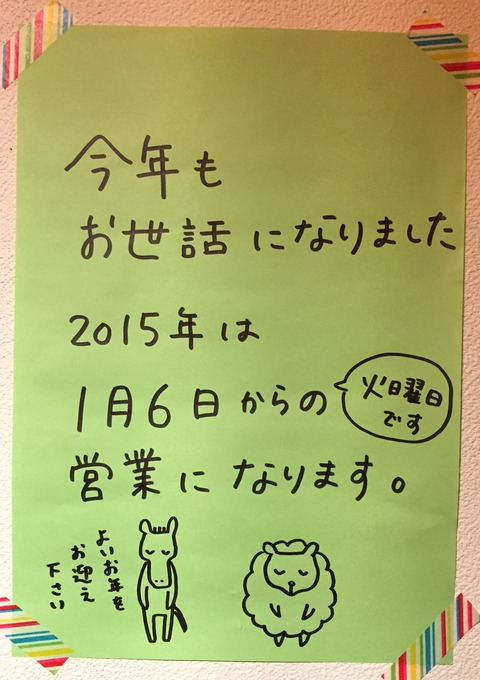 今年も
お世話になりました
2015年は
1月6日からの
火曜日
です
営業になります。
よいお年を
お迎え
下さい